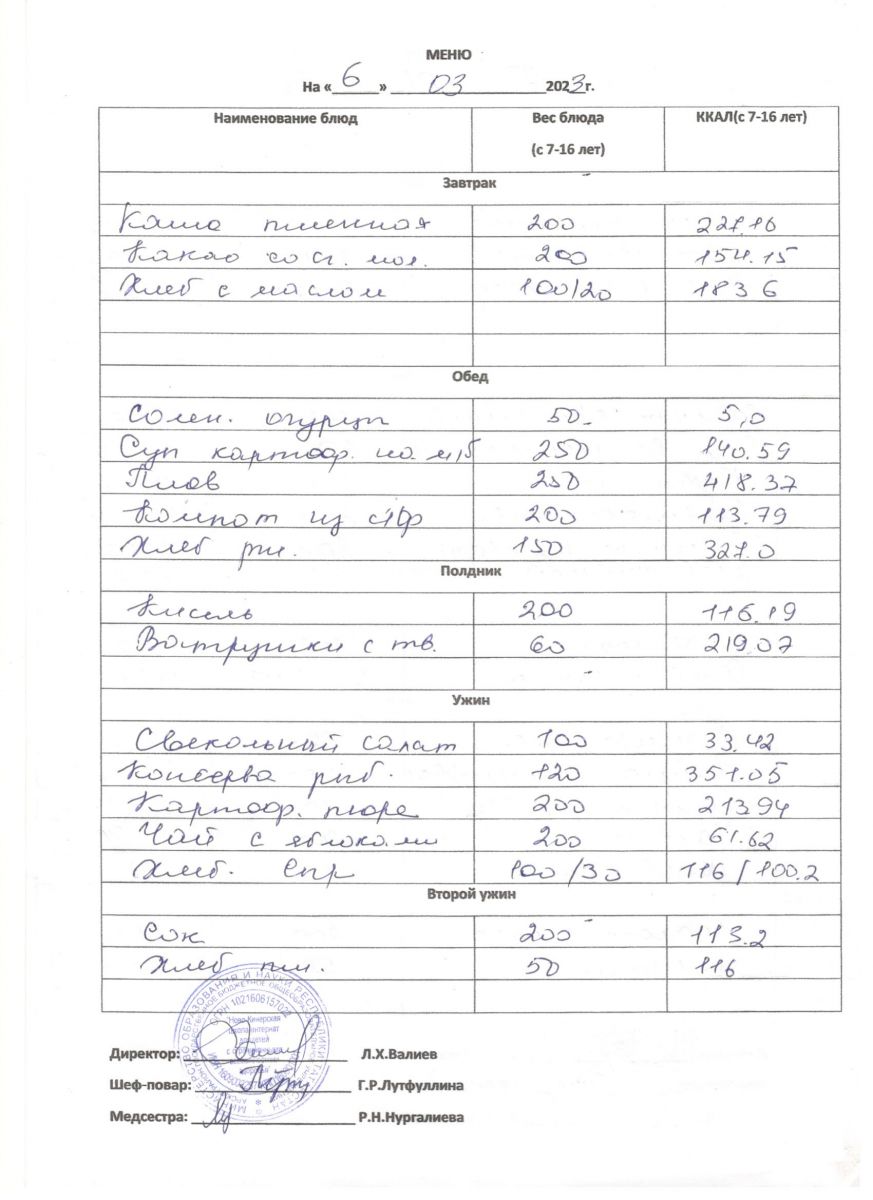 МЕНЮ
На « 6 » 03 2023г.
Наименование блюд Вес блюда (с 7-16 лет) ККАЛ(с 7-16 лет)
Завтрак
Каша пшенная 200 227.16
Какао со сг. мол. 200 154.15
Хлеб с маслом 100/20 183 6
Обед
Солен. огурцы 50 5,0
Суп картоф. на м/б 250 140.59
Плов 250 418.37
Компот из с/ф 200 113.79
Хлеб рж. 150 327.0
Полдник
Кисель 200 116.19
Ватрушки с тв. 60 219.07
Ужин
Свекольный салат 100 33.42
Консерва рыб. 120 351.05
Картоф. пюре 200 213.94
Чай с яблоками 200 61.62
Хлеб. 100/30 116/100.2
Второй ужин
Сок 200 113.2
Хлеб пш. 50 116
Директор: Л.Х.Валиев
Шеф-повар: Г.Р.Лутфуллина
Медсестра: Р.Н.Нургалиева